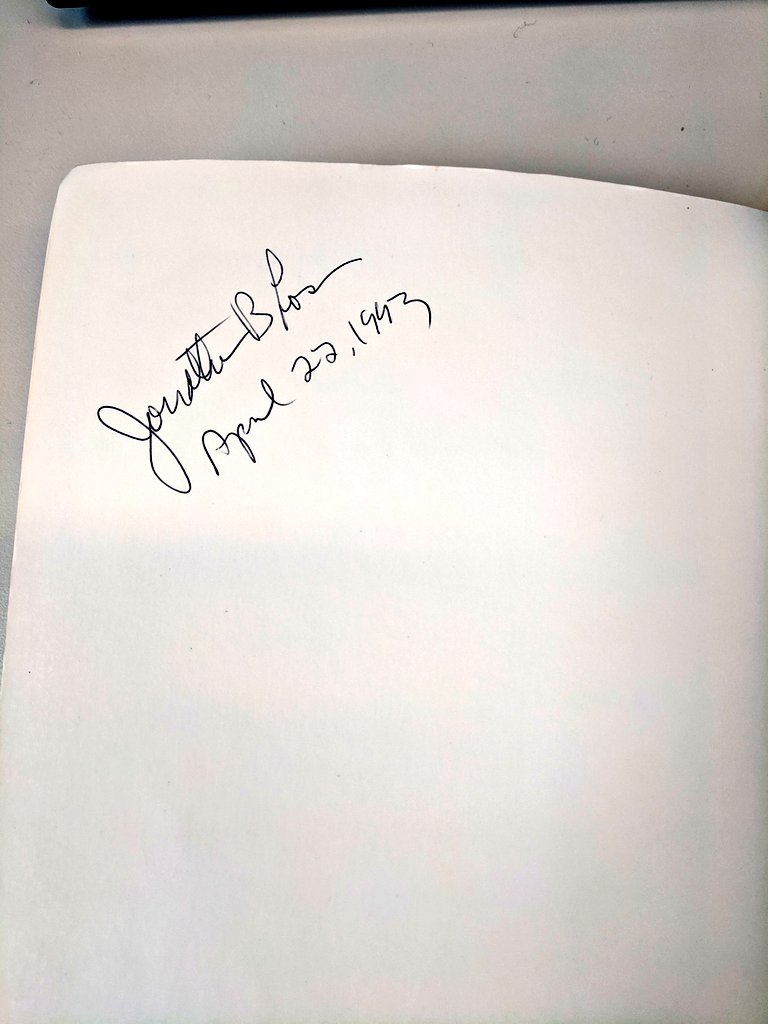 Jonathan B Los
April 22, 1993